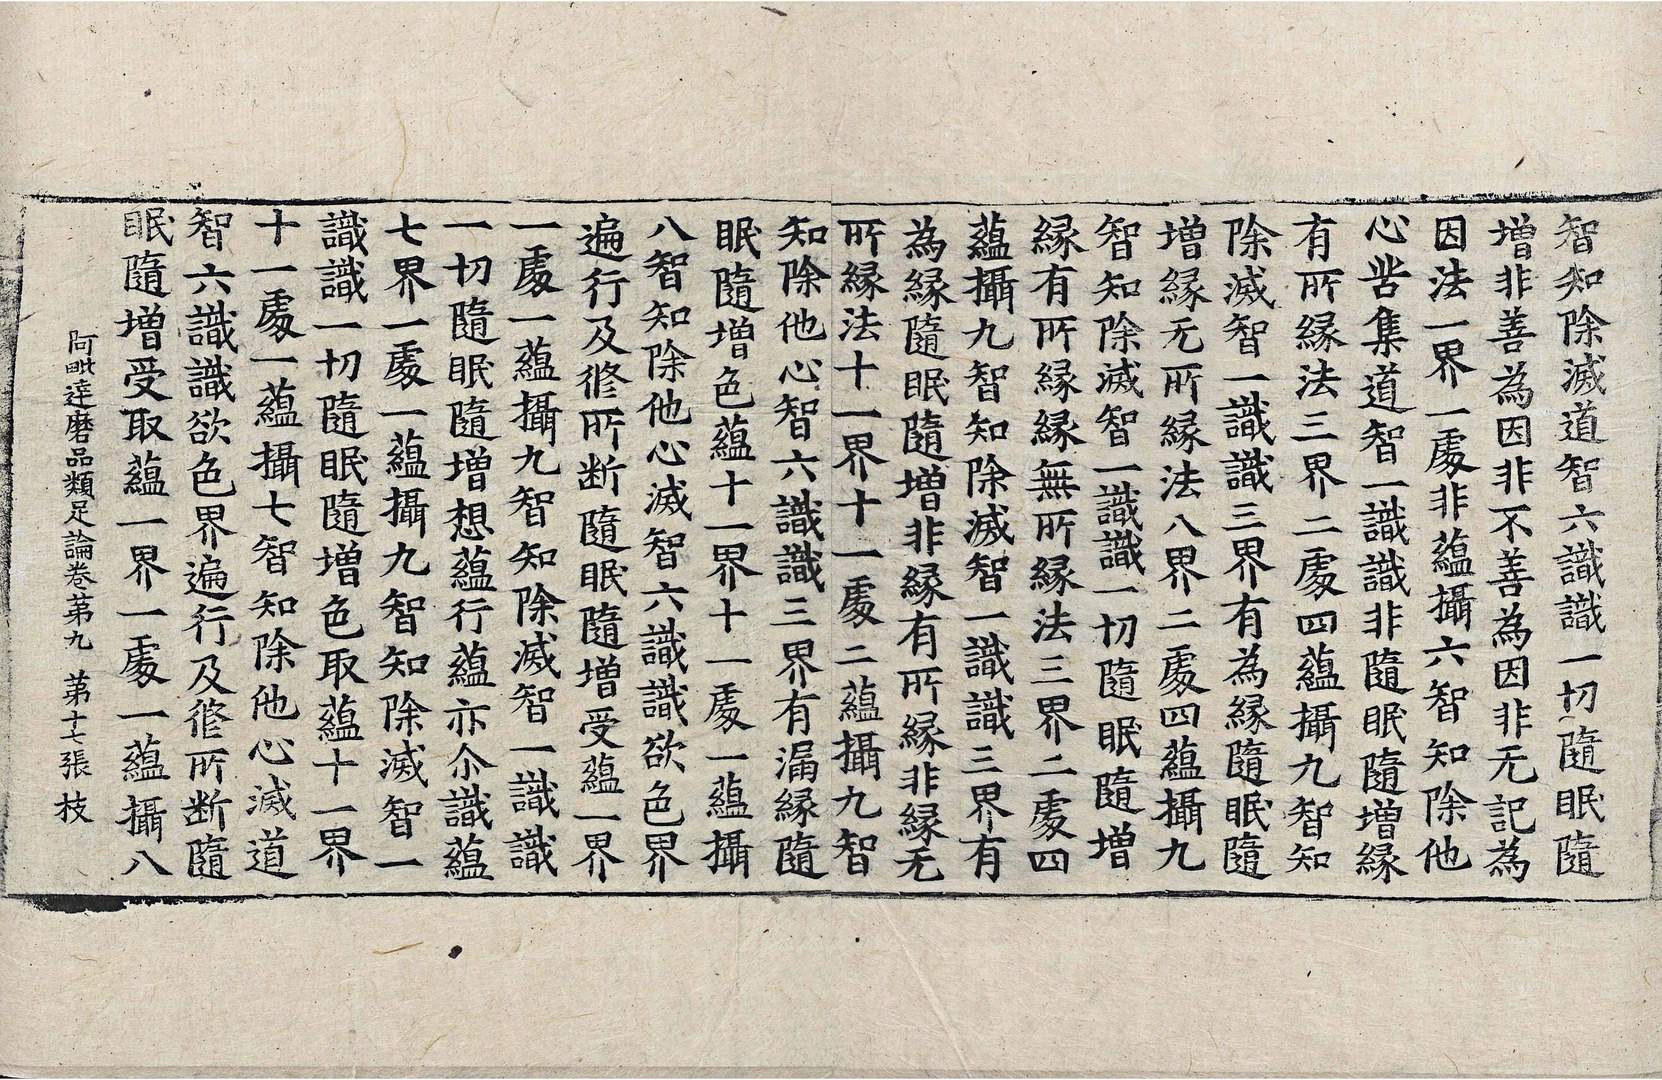 智知除滅道智六識識一切隨眠隨
增非善為因非不善為因非无記為
因法一界一處非蘊攝六智知除他
心苦集道智一識識非隨眠隨增緣
有所緣法三界二處四蘊攝九智知
除滅智一識識三界有為緣隨眠隨
增緣无所緣法八界二處四蘊攝九
智知除滅智一識識一切隨眠隨增
緣有所緣緣無所緣法三界二處四
蘊攝九智知除滅智一識識三界有
為緣隨眠隨增非緣有所緣非緣无
所緣法十一界十一處二蘊攝九智
知除他心智六識識三界有漏緣隨
眠隨增色蘊十一界十一處一蘊攝
八智知除他心滅智六識識欲色界
遍行及修所断隨眠隨增受蘊一界
一處一蘊攝九智知除滅智一識識
一切隨眠隨增想蘊行蘊亦尒識蘊
七界一處一蘊攝九智知除滅智一
識識一切隨眠隨增色取蘊十一界
十一處一蘊攝七智知除他心滅道
智六識識欲色界遍行及修所断隨
眠隨增受取蘊一界一處一蘊攝八
阿毗達磨品類足論卷第九 第十七張 枝